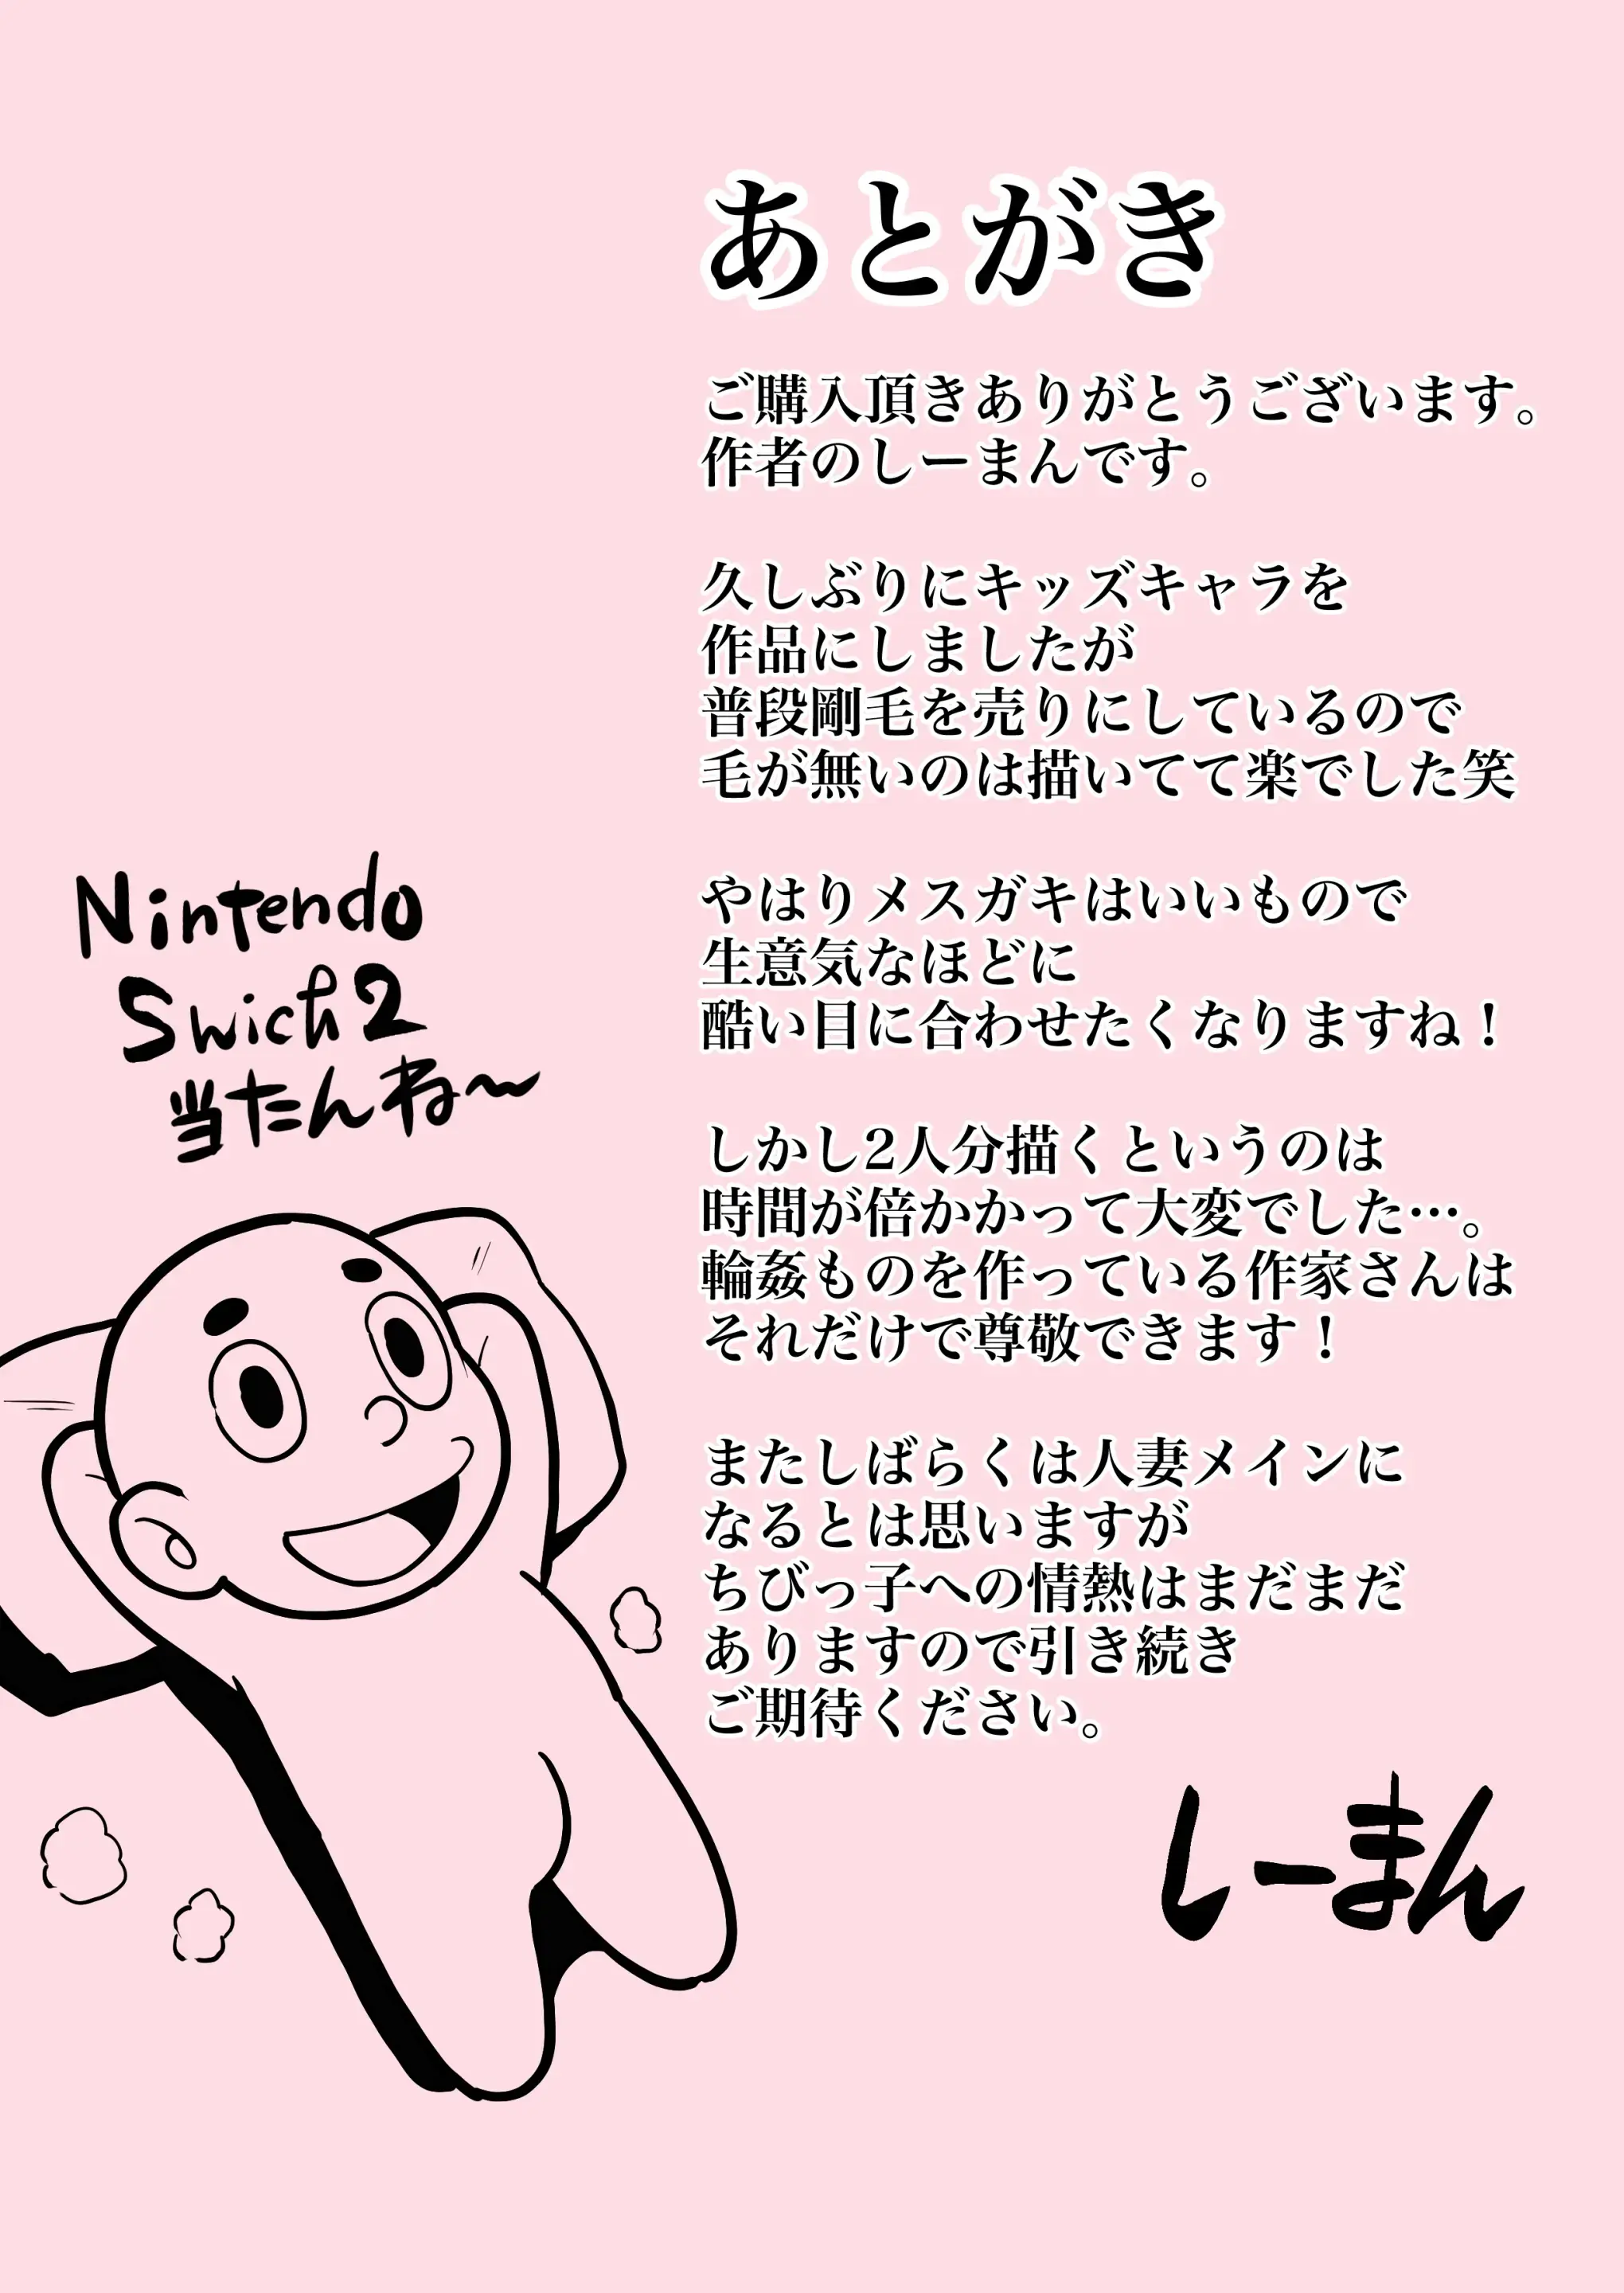 あとがき
ご購入頂きありがとうございます。
作者のしーまんです。
久しぶりにキッズキャラを
作品にしましたが
普段剛毛を売りにしているので
毛が無いのは描いてて楽でした笑
やはりメスガキはいいもので
生意気なほどに
酷い目に合わせたくなりますね！
しかし2人分描くというのは
時間が倍かかって大変でした…。
輪姦ものを作っている作家さんは
それだけで尊敬できます！
またしばらくは人妻メインに
なるとは思いますが
ちびっ子への情熱はまだまだ
ありますので引き続き
ご期待ください。
しーまん
Nintendo
Swich2
当たんね～